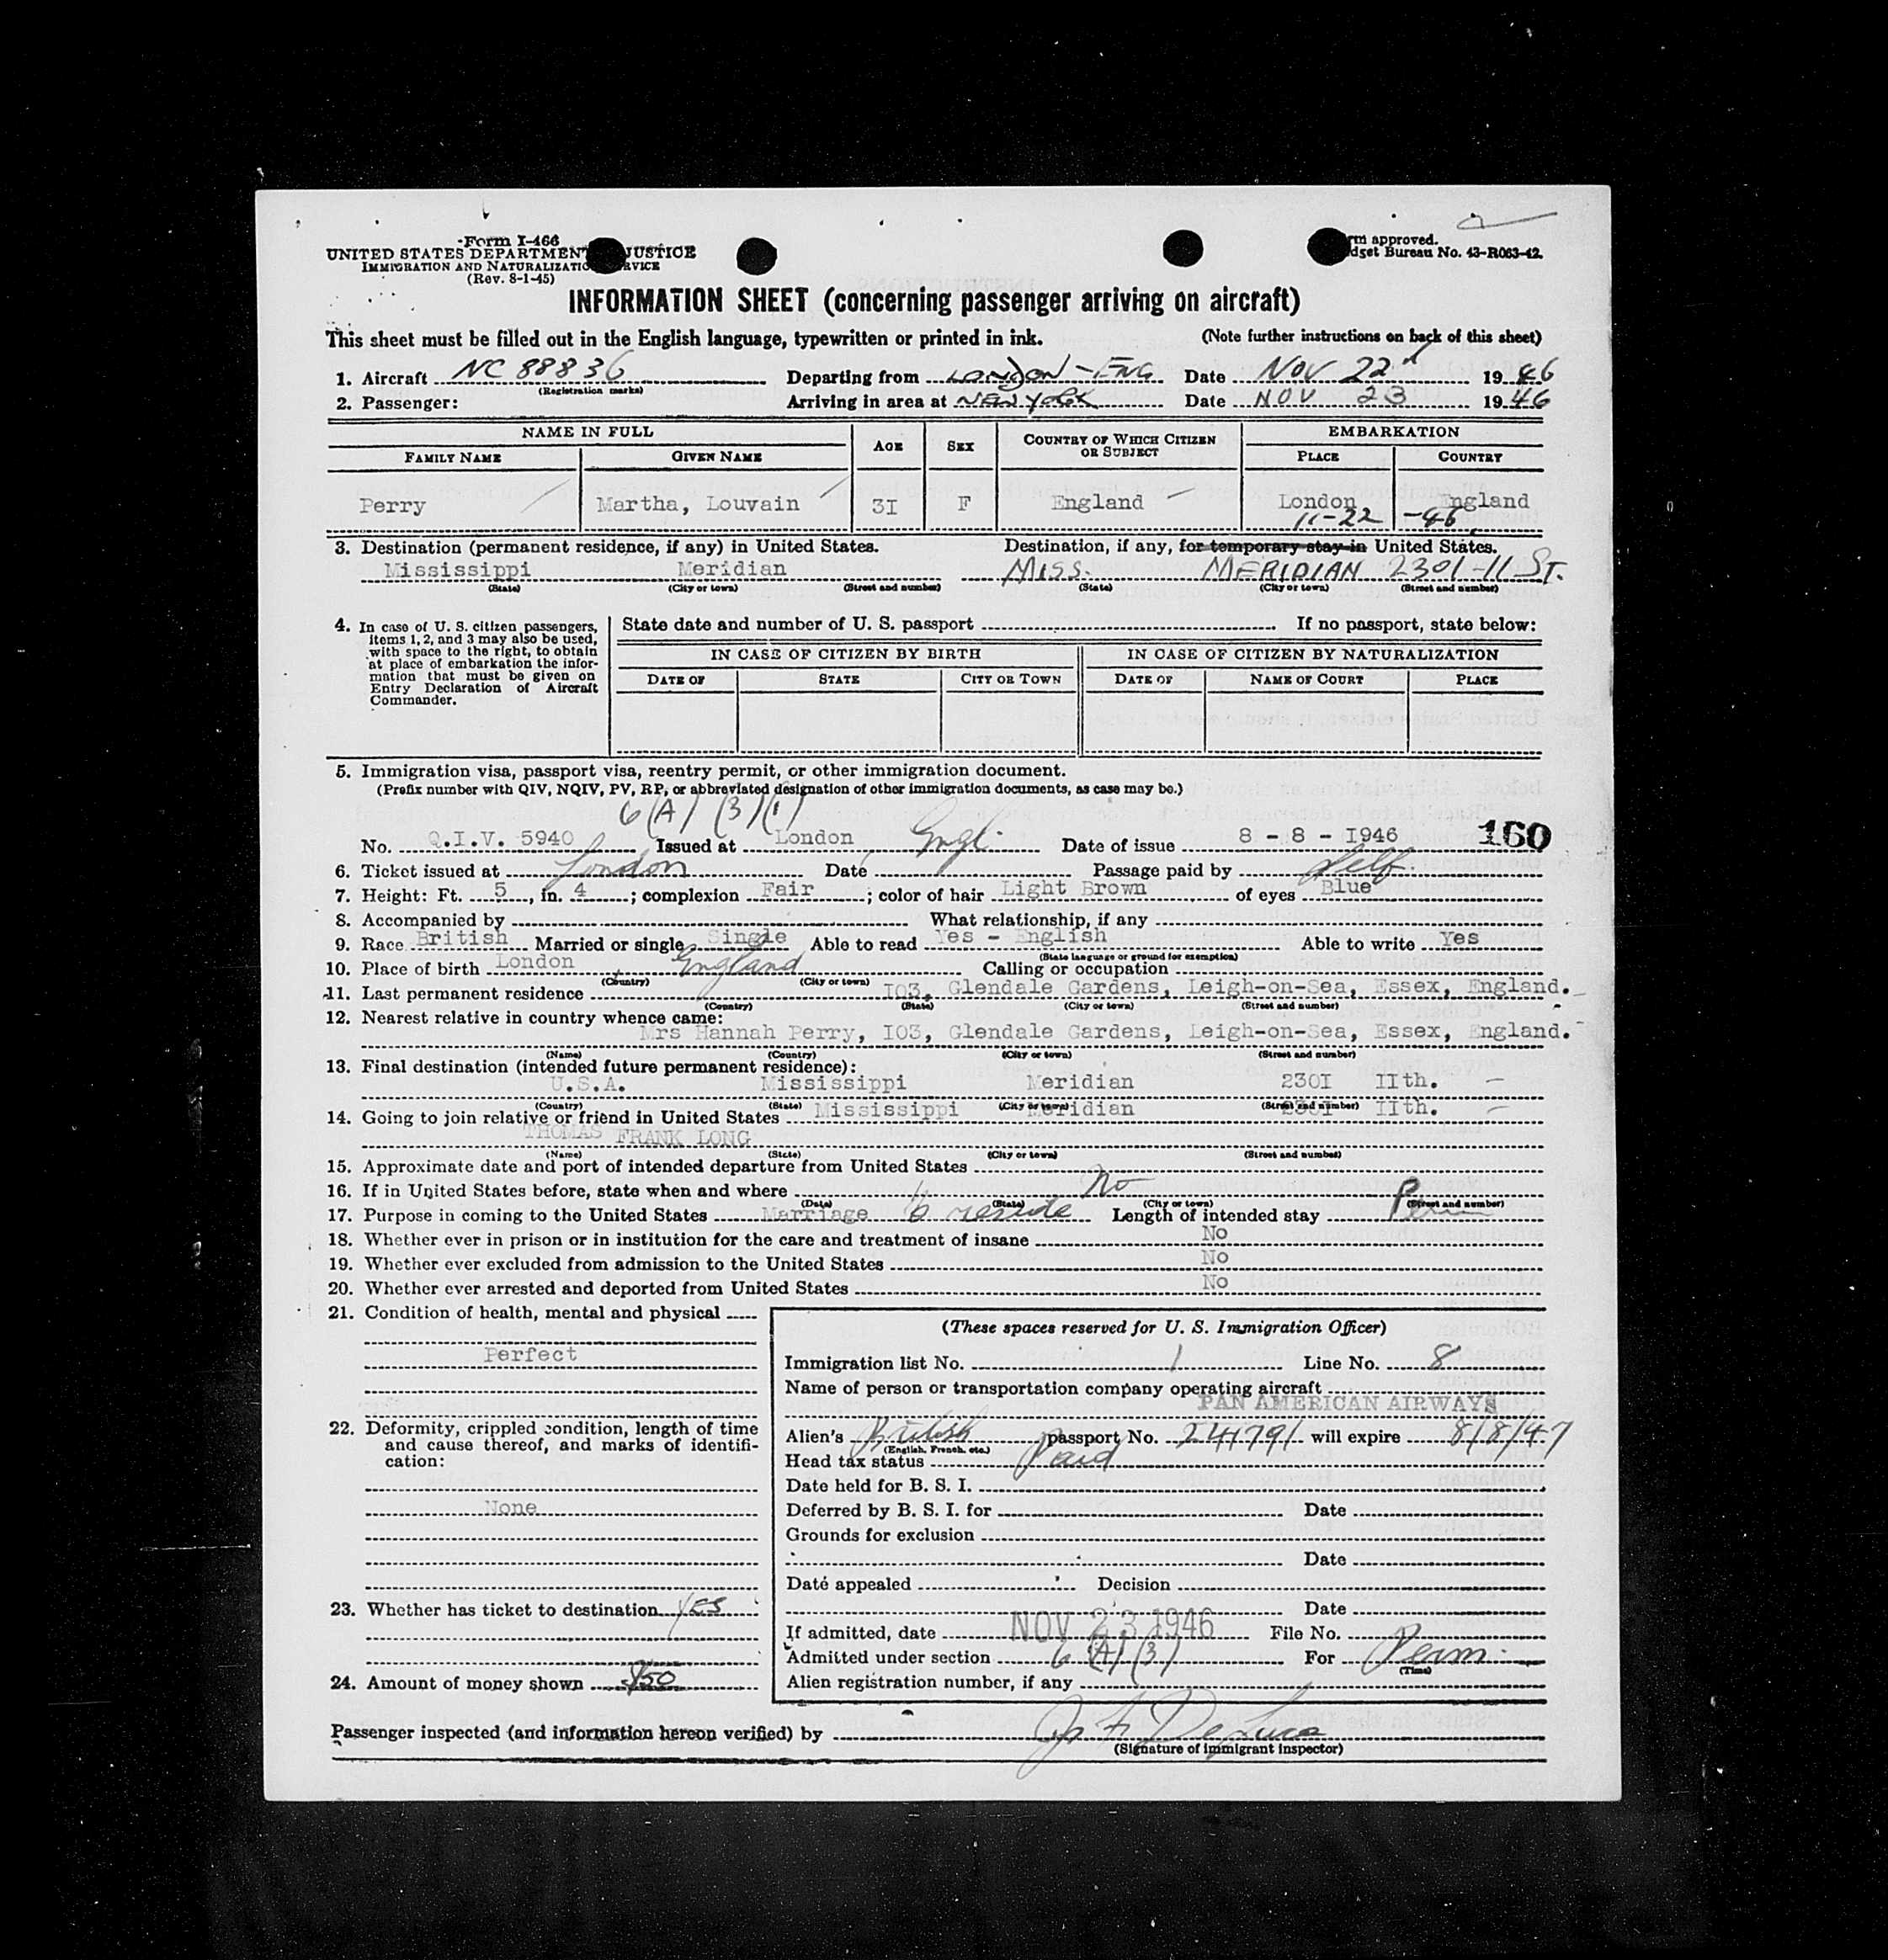 Form I-466
UNITED STATES DEPARTMENT JUSTICE
IMMIGRATION AND NATURALIZATION SERVICE
(Rev. 8-1-45)
approved.
Bureau No. 43-R063-42.
INFORMATION SHEET (concerning passenger arriving on aircraft)
This sheet must be filled out in the English language, typewritten or printed in ink. (Note further instructions on back of this sheet)
1. Aircraft NC 88836 Departing from LONDON - ENG Date NOV 22 1946
(Registration marks)
2. Passenger: Arriving in area at NEW YORK Date NOV 23 1946
NAME IN FULL AGE SEX COUNTRY OF WHICH CITIZEN OR SUBJECT EMBARKATION
FAMILY NAME GIVEN NAME PLACE COUNTRY
Perry Martha, Louvain 3I F England London England
11-22 -46
3. Destination (permanent residence, if any) in United States. Destination, if any, for temporary stay in United States.
Mississippi Meridian MISS. MERIDIAN 2301-11 ST.
(State) (City or town) (Street and number) (State) (City or town) (Street and number)
4. In case of U. S. citizen passengers, items 1, 2, and 3 may also be used, with space to the right, to obtain at place of embarkation the information that must be given on Entry Declaration of Aircraft Commander.
State date and number of U. S. passport If no passport, state below:
IN CASE OF CITIZEN BY BIRTH IN CASE OF CITIZEN BY NATURALIZATION
DATE OF STATE CITY OR TOWN DATE OF NAME OF COURT PLACE
5. Immigration visa, passport visa, reentry permit, or other immigration document.
(Prefix number with QIV, NQIV, PV, RP, or abbreviated designation of other immigration documents, as case may be.)
6(A) (3)(1)
No. Q.I.V. 5940 Issued at London Engl. Date of issue 8 - 8 - I946 160
6. Ticket issued at London Date Passage paid by Self.
7. Height: Ft. 5, in. 4; complexion Fair; color of hair Light Brown of eyes Blue
8. Accompanied by What relationship, if any
9. Race British Married or single Single Able to read Yes - English Able to write Yes
(State language or ground for exemption)
10. Place of birth London England Calling or occupation
(Country) (City or town)
11. Last permanent residence I03, Glendale Gardens, Leigh-on-Sea, Essex, England.
(Country) (State) (City or town) (Street and number)
12. Nearest relative in country whence came:
Mrs Hannah Perry, I03, Glendale Gardens, Leigh-on-Sea, Essex, England.
(Name) (Country) (City or town) (Street and number)
13. Final destination (intended future permanent residence):
U.S.A. Mississippi Meridian 230I IIth.
(Country) (State) (City or town) (Street and number)
14. Going to join relative or friend in United States Mississippi Meridian 230I IIth.
THOMAS FRANK LONG
(Name) (State) (City or town) (Street and number)
15. Approximate date and port of intended departure from United States
16. If in United States before, state when and where No
(Date) (State) (City or town) (Street and number)
17. Purpose in coming to the United States Marriage to reside Length of intended stay Perm
18. Whether ever in prison or in institution for the care and treatment of insane No
19. Whether ever excluded from admission to the United States No
20. Whether ever arrested and deported from United States No
21. Condition of health, mental and physical
Perfect
22. Deformity, crippled condition, length of time and cause thereof, and marks of identification:
None
23. Whether has ticket to destination YES
24. Amount of money shown $50
(These spaces reserved for U. S. Immigration Officer)
Immigration list No. 1 Line No. 8
Name of person or transportation company operating aircraft
PAN AMERICAN AIRWAYS
Alien's British passport No. 241791 will expire 8/8/47
(English, French, etc.)
Head tax status Paid
Date held for B. S. I.
Deferred by B. S. I. for Date
Grounds for exclusion
Date
Date appealed Decision
Date
If admitted, date NOV 23 1946 File No.
Admitted under section 6 (A) (3) For Perm.
(Time)
Alien registration number, if any
Passenger inspected (and information hereon verified) by
(Signature of immigrant inspector)